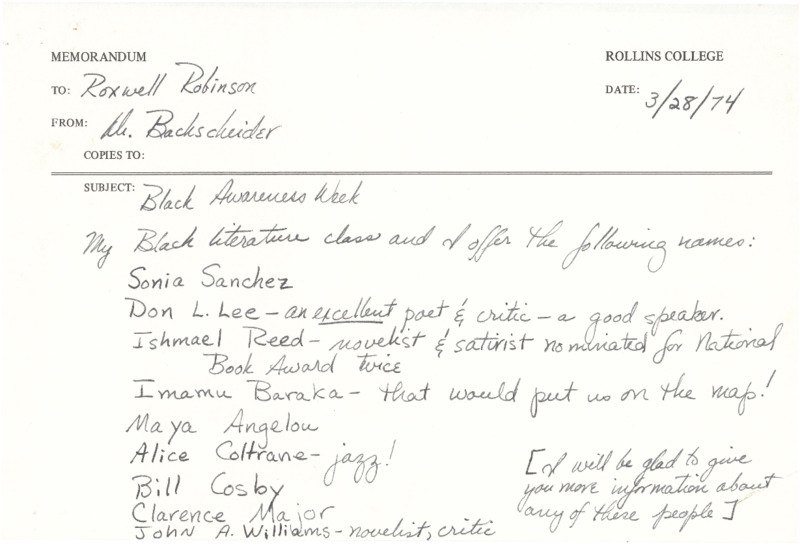 MEMORANDUM
ROLLINS COLLEGE
TO: Roxwell Robinson
DATE: 3/28/74
FROM: Dr. Backscheider
COPIES TO:
SUBJECT: Black Awareness Week
My Black literature class and I offer the following names:
Sonia Sanchez
Don L. Lee – an excellent poet & critic – a good speaker.
Ishmael Reed – novelist & satirist nominated for National
Book Award twice
Imamu Baraka – that would put us on the map!
Maya Angelou
Alice Coltrane – jazz!
Bill Cosby
Clarence Major
John A. Williams – novelist, critic
[I will be glad to give
you more information about
any of these people]